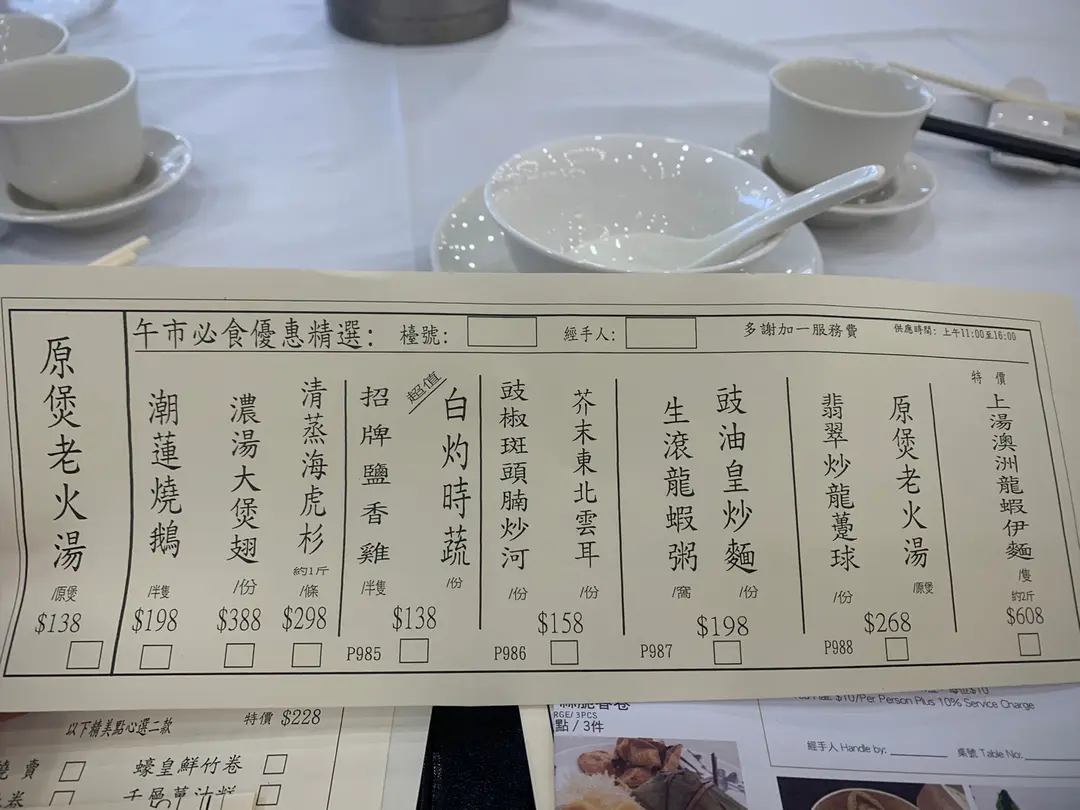 原煲老火湯
/原煲
$138
午市必食優惠精選:
檯號:
經手人:
多謝加一服務費
供應時間: 上午11:00至16:00
潮蓮燒鵝
/半隻
$198
濃湯大煲翅
/份
$388
清蒸海虎杉
約1斤
/條
$298
招牌鹽香雞
/半隻
超值
白灼時蔬
/份
$138
P985
豉椒斑頭腩炒河
/份
芥末東北雲耳
/份
$158
P986
生滾龍蝦粥
/窩
豉油皇炒麵
/份
$198
P987
翡翠炒龍躉球
/份
原煲老火湯
/原煲
$268
P988
特價
上湯澳洲龍蝦伊麵
/隻
約2斤
$608
以下精美點心選二款
特價 $228
燒賣
蠔皇鮮竹卷
千層薑汁糕
RGE/3PCS
點 / 3件
$10/Per Person Plus 10% Service Charge
經手人 Handle by:
桌號 Table No: